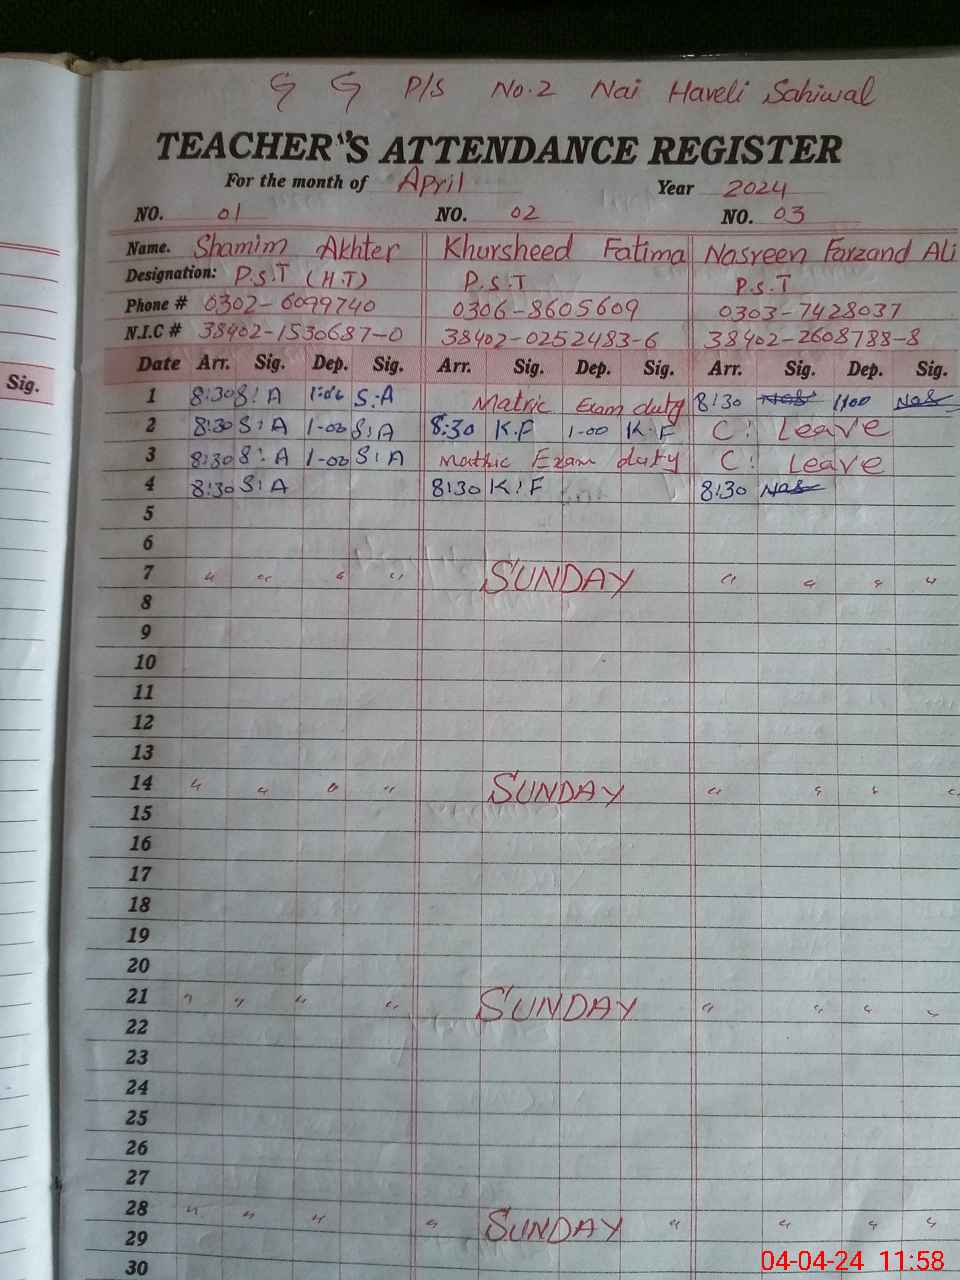 G G P/S No.2 Nai Haveli Sahiwal
TEACHER'S ATTENDANCE REGISTER
For the month of April Year 2024
NO. 01 NO. 02 NO. 03
Name. Shamim Akhter Khursheed Fatima Nasreen Farzand Ali
Designation: P.S.T (H.T) P.S.T P.S.T
Phone # 0302-6099740 0306-8605609 0303-7428037
N.I.C # 38402-1530687-0 38402-0252483-6 38402-2608788-8
Sig. Date Arr. Sig. Dep. Sig. Arr. Sig. Dep. Sig. Arr. Sig. Dep. Sig.
1 8:30 S:A 1:00 S:A Matric Exam duty 8:30 Nas 1:00 Nas
2 8:30 S:A 1-00 S:A 8:30 K.F 1-00 K.F C: Leave
3 8:30 S:A 1-00 S:A Mathic Exam duty C: Leave
4 8:30 S:A 8:30 K:F 8:30 Nas
5
6
7 " " " " SUNDAY " " " "
8
9
10
11
12
13
14 " " " " SUNDAY " " " "
15
16
17
18
19
20
21 " " " " SUNDAY " " " "
22
23
24
25
26
27
28 " " " " SUNDAY " " " "
29
30
04-04-24 11:58